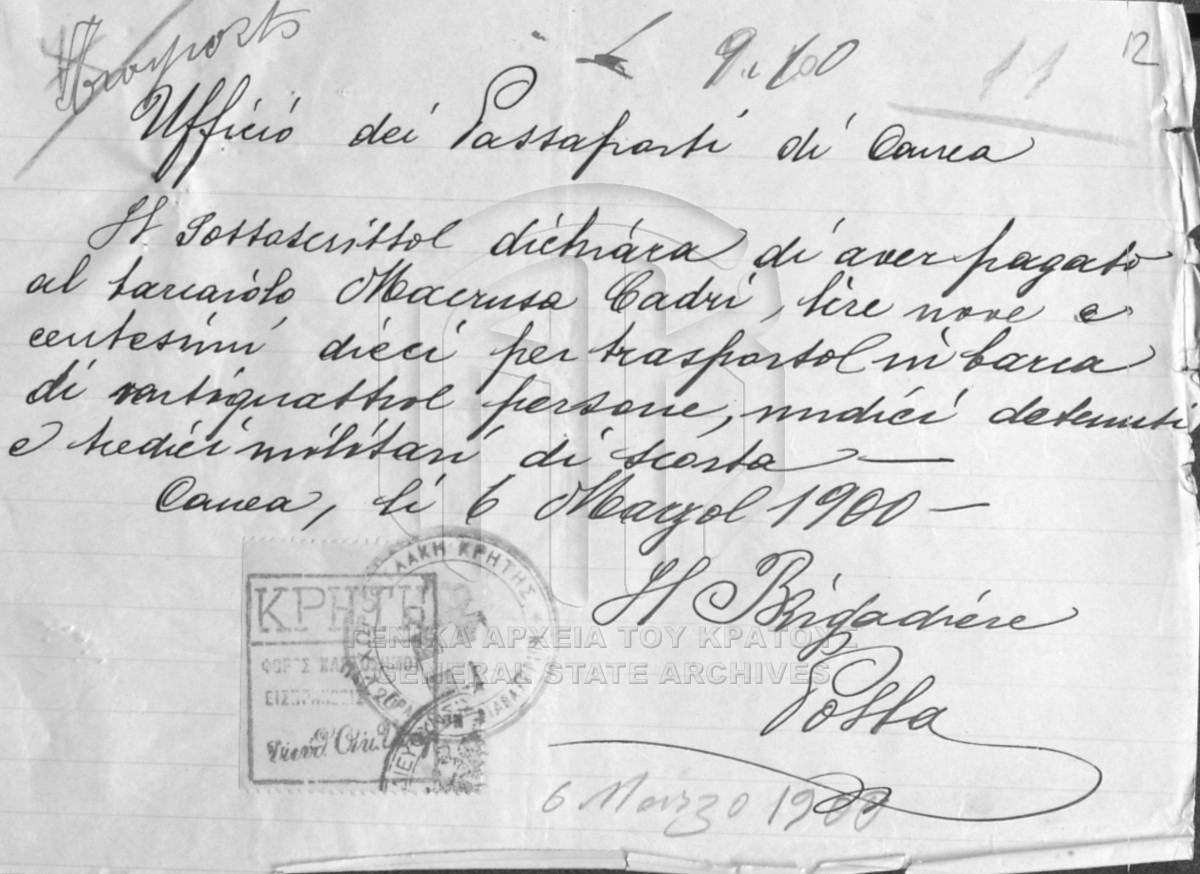 Trasporto
9.100 11 12
Ufficio dei Passaporti di Canea
Il Sottoscrittol dichiara di aver pagato
al barcaiolo Macruso Cadri, lire nove e
centesimi dieci per trasportol in barca
di ventiquattrol persone, undici detenuti
e tredici militari di scorta —
Canea, li 6 Marzol 1900 —
Il Brigadiere
Posta
6 Marzo 1900
ΚΡΗΤΗ
ΦΟΡΟΣ
ΕΙΣΠΡΑΞΕΩΣ
ΛΑΚΗ ΚΡΗΤΗΣ
ΓΕΝΙΚΑ ΑΡΧΕΙΑ ΤΟΥ ΚΡΑΤΟΥΣ
GENERAL STATE ARCHIVES